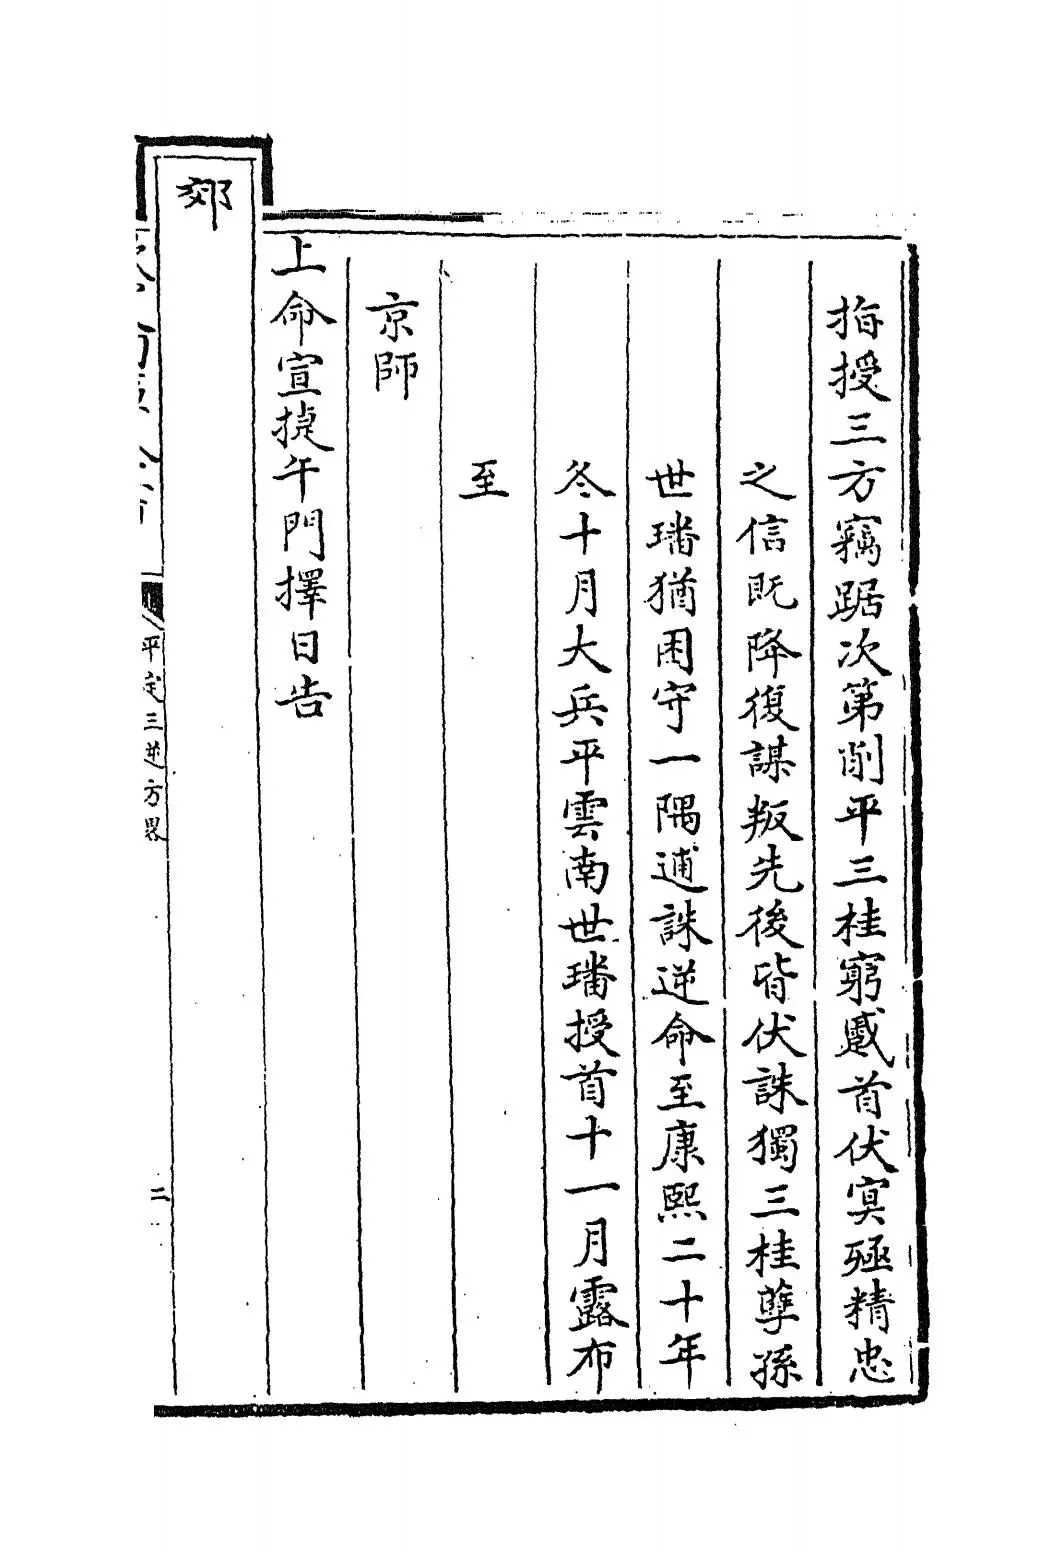 指授三方竊踞次第削平三桂窮蹙首伏冥殛精忠
之信既降復謀叛先後皆伏誅獨三桂孽孫
世璠猶困守一隅逋誅逆命至康熙二十年
冬十月大兵平雲南世璠授首十一月露布
至
京師
上命宣捷午門擇日告
郊
平定三逆方畧
二